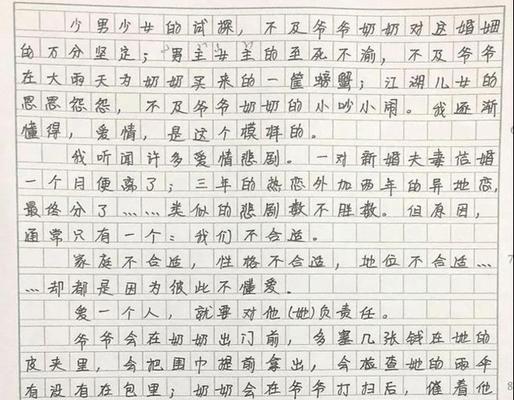 少男少女的试探，不及爷爷奶奶对这婚姻
的万分坚定；男主女主的至死不渝，不及爷爷
在大雨天为奶奶买来的一筐螃蟹；江湖儿女的
恩恩怨怨，不及爷爷奶奶的小吵小闹。我逐渐
懂得，爱情，是这个模样的。
我听闻许多爱情悲剧。一对新婚夫妻结婚
一个月便离了；三年的热恋外加两年的异地恋，
最终分了……类似的悲剧数不胜数。但原因，
通常只有一个：我们不合适。
家庭不合适，性格不合适，地位不合适…
…却都是因为彼此不懂爱。
爱一个人，就要对他(她)负责任。
爷爷会在奶奶出门前，多塞几张钱在她的
皮夹里，会把围巾提前拿出，会检查她的雨伞
有没有在包里；奶奶会在爷爷打扫后，催着他
7
8